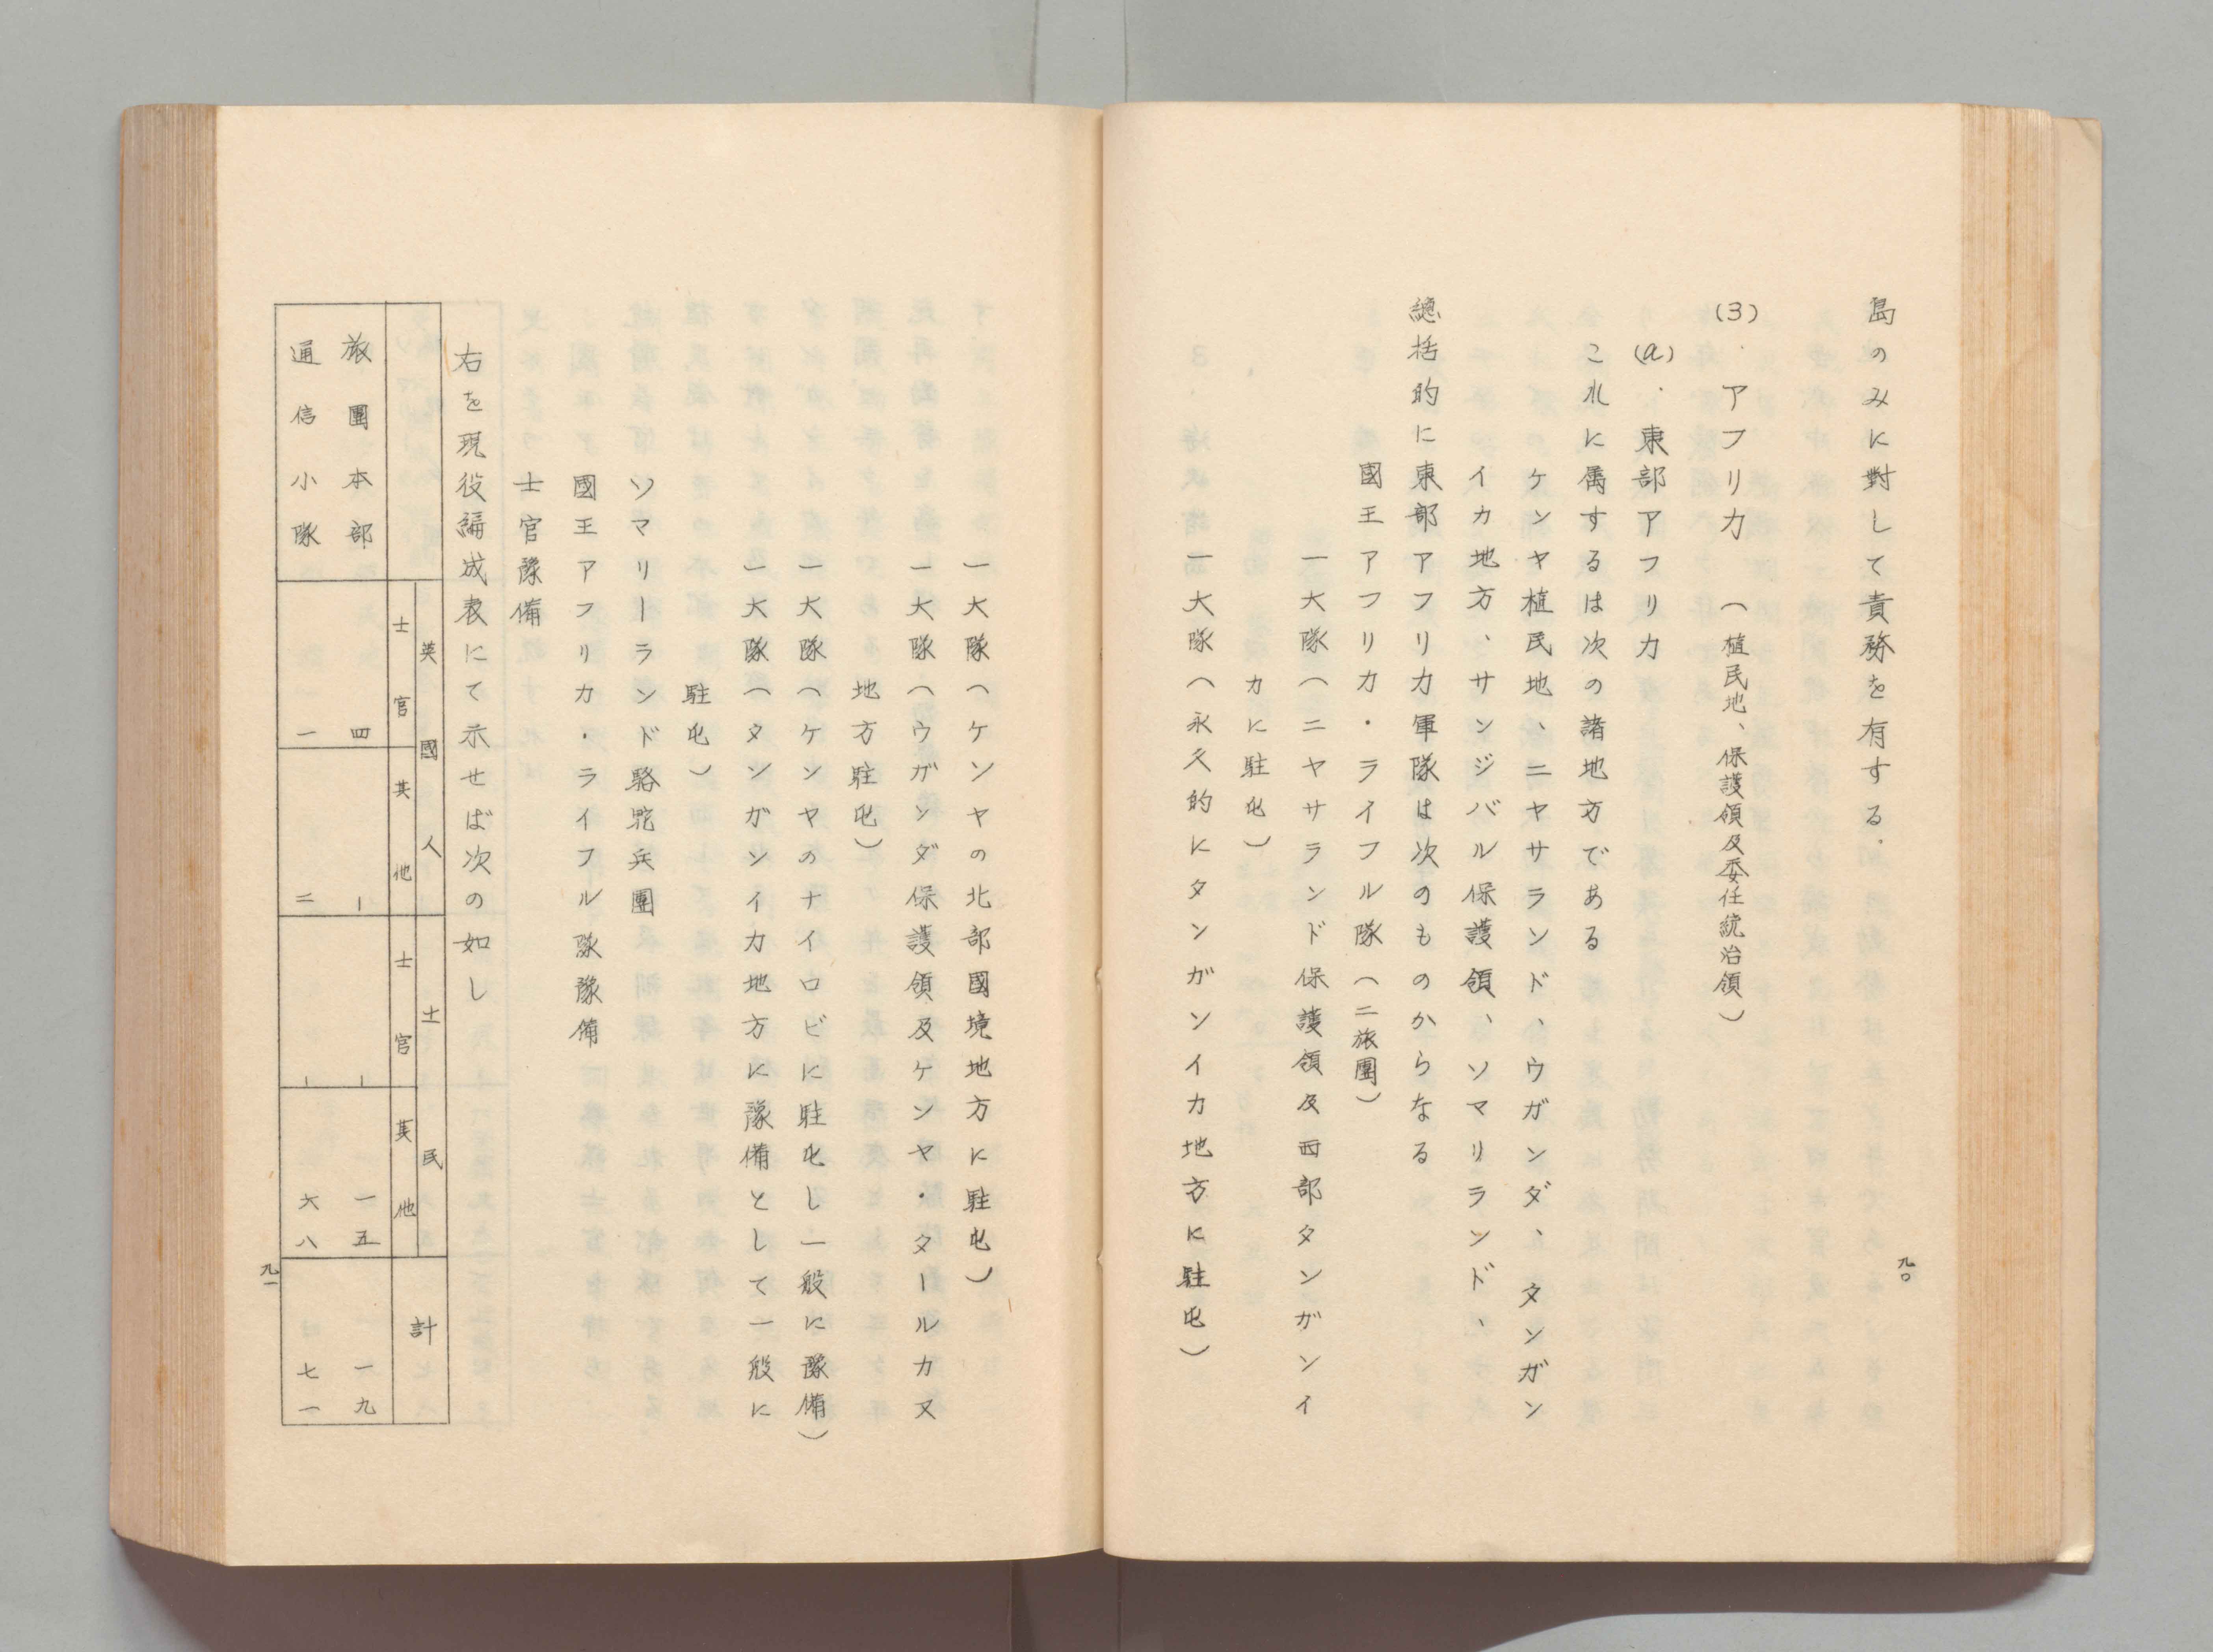 島のみに對して責務を有する．
(3)．アフリカ （植民地、保護領及委任統治領）
(a)．東部アフリカ
これに属するは次の諸地方である
ケンヤ植民地、ニヤサランド、ウガンダ、タンガン
イカ地方、サンジバル保護領、ソマリランド、
總括的に東部アフリカ軍隊は次のものからなる
國王アフリカ・ライフル隊（二旅團）
一大隊（ニヤサランド保護領及西部タンガンイ
カに駐屯）
一大隊（永久的にタンガンイカ地方に駐屯）
九〇
一大隊（ケンヤの北部國境地方に駐屯）
一大隊（ウガンダ保護領及ケンヤ・タールカヌ
地方駐屯）
一大隊（ケンヤのナイロビに駐屯し一般に豫備）
一大隊（タンガンイカ地方に豫備として一般に
駐屯）
ソマリーランド駱駝兵團
國王アフリカ・ライフル隊豫備
士官豫備
右を現役編成表にて示せば次の如し
英國人 土民 計
士官 其他 士官 其他
旅團本部 四 ｜ ｜ 一五 一九
通信小隊 一 二 ｜ 六八 七一
九一